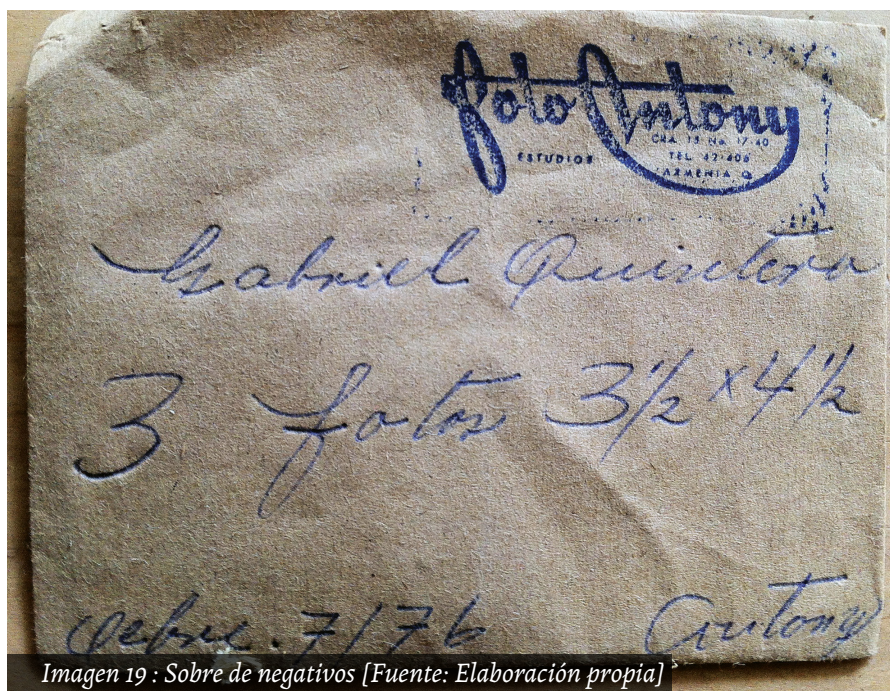 foto Antony
ESTUDIOS
CRA. 15 No. 17-40
TEL. 42-606
ARMENIA Q.
Gabriel Quintero
3 fotos 3½ x 4½
7/76 Antony
Imagen 19 : Sobre de negativos [Fuente: Elaboración propia]